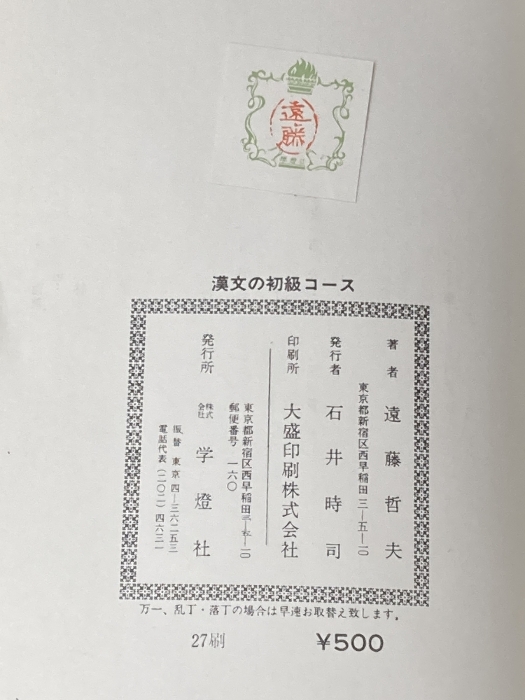 遠藤
漢文の初級コース
著者 遠藤哲夫
東京都新宿区西早稲田三―五―一〇
発行者 石井時司
印刷所 大盛印刷株式会社
東京都新宿区西早稲田三―五―一〇
郵便番号 一六〇
発行所 株式会社 学燈社
振替 東京四―三六二五三
電話代表(二〇二)四六三一
万一、乱丁・落丁の場合は早速お取替え致します。
27刷
¥500